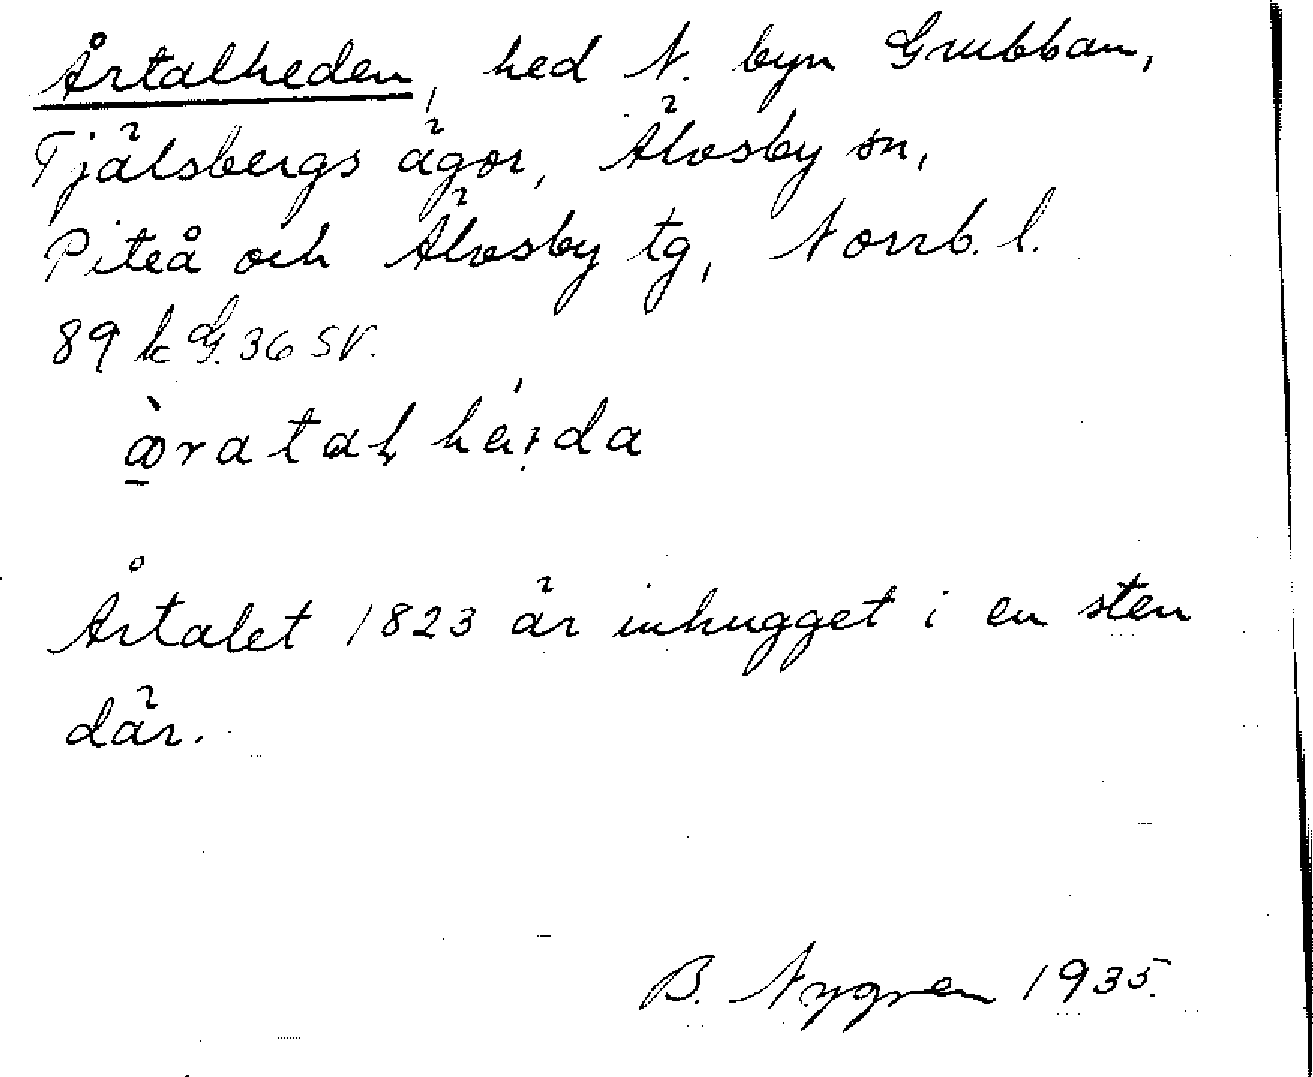 Årtalheden, hed N. byn Grubban,
Tjälsbergs ägor, Älvsby sn,
Piteå och Älvsby tg, Norrb. l.
89 k G. 36 SV.
Årtalet 1823 är inhugget i en sten
där.
B. Nygren 1935.